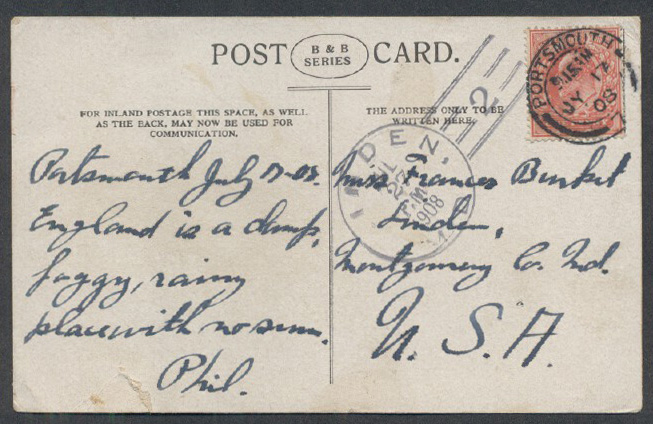 POST CARD.
B & B
SERIES
FOR INLAND POSTAGE THIS SPACE, AS WELL
AS THE BACK, MAY NOW BE USED FOR
COMMUNICATION.
THE ADDRESS ONLY TO BE
WRITTEN HERE.
PORTSMOUTH
JY 17
08
2
LINDEN,
JUL
27
1908
Portsmouth July 17-08.
England is a damp,
foggy, rainy
place with no sun.
Phil.
Miss Frances
Linden,
Montgomery Co. Md.
U.S.A.